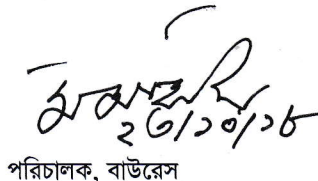 ২৩/১০/১৮
পরিচালক, বাউরেস